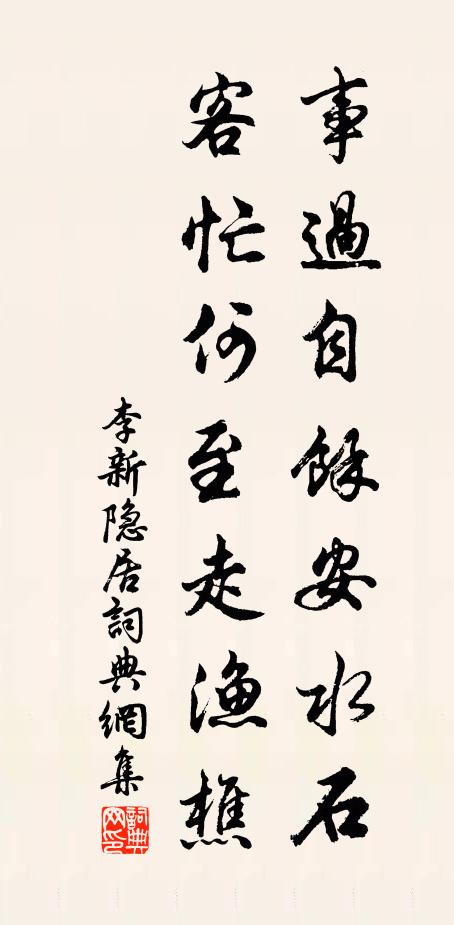 事過自餘安水石
客忙何至走漁樵
李新隐居詞典網集
詞典網印